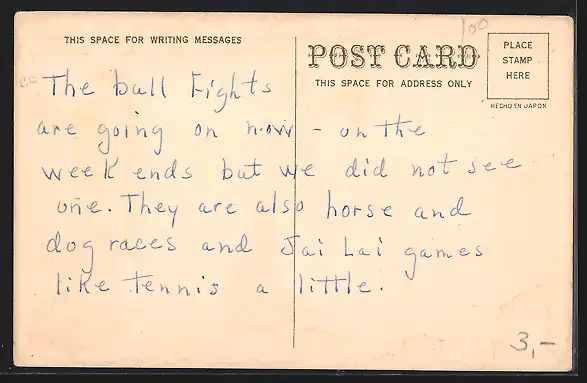 THIS SPACE FOR WRITING MESSAGES
100
POST CARD
THIS SPACE FOR ADDRESS ONLY
PLACE
STAMP
HERE
HECHO EN JAPON
The bull Fights
are going on now - on the
week ends but we did not see
one. They are also horse and
dog races and Jai Lai games
like tennis a little.
3,-